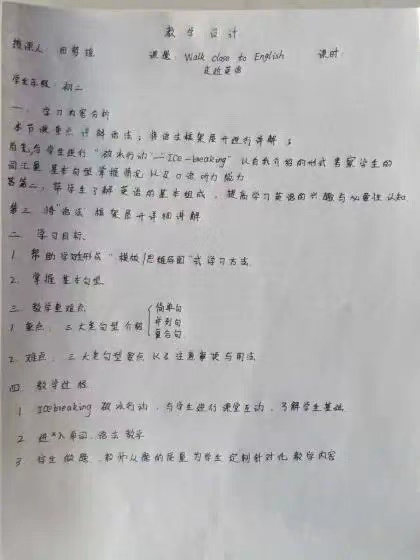 教学设计
授课人: 田 课题: Walk close to English 课时:
走近英语
学生年级: 初二
一、学习内容分析
本节课重点讲解语法, 将语法框架展开进行讲解;
首先, 与学生进行“破冰行动”—Ice-breaking” 以自我介绍的形式 考察学生的
词汇量 基本句型掌握情况 以及口语听力能力
第二, 帮学生了解英语的基本组成, 提高学习英语的兴趣与必要性认知
第三 将“语法”框架展开详细讲解
二 学习目标
1. 帮助学生形成“模版/思维导图”式学习方法
2. 掌握基本句型
三、教学重难点
简单句
1 重点: 三大类句型介绍 并列句
复合句
2. 难点: 三大类句型要点以及注意事项与用法
四. 教学过程
1. Icebreaking 破冰行动, 与学生进行课堂互动, 了解学生基础
2 进入单词、语法教学
3 学生做题, 教师从题的质量为学生定制针对化教学内容